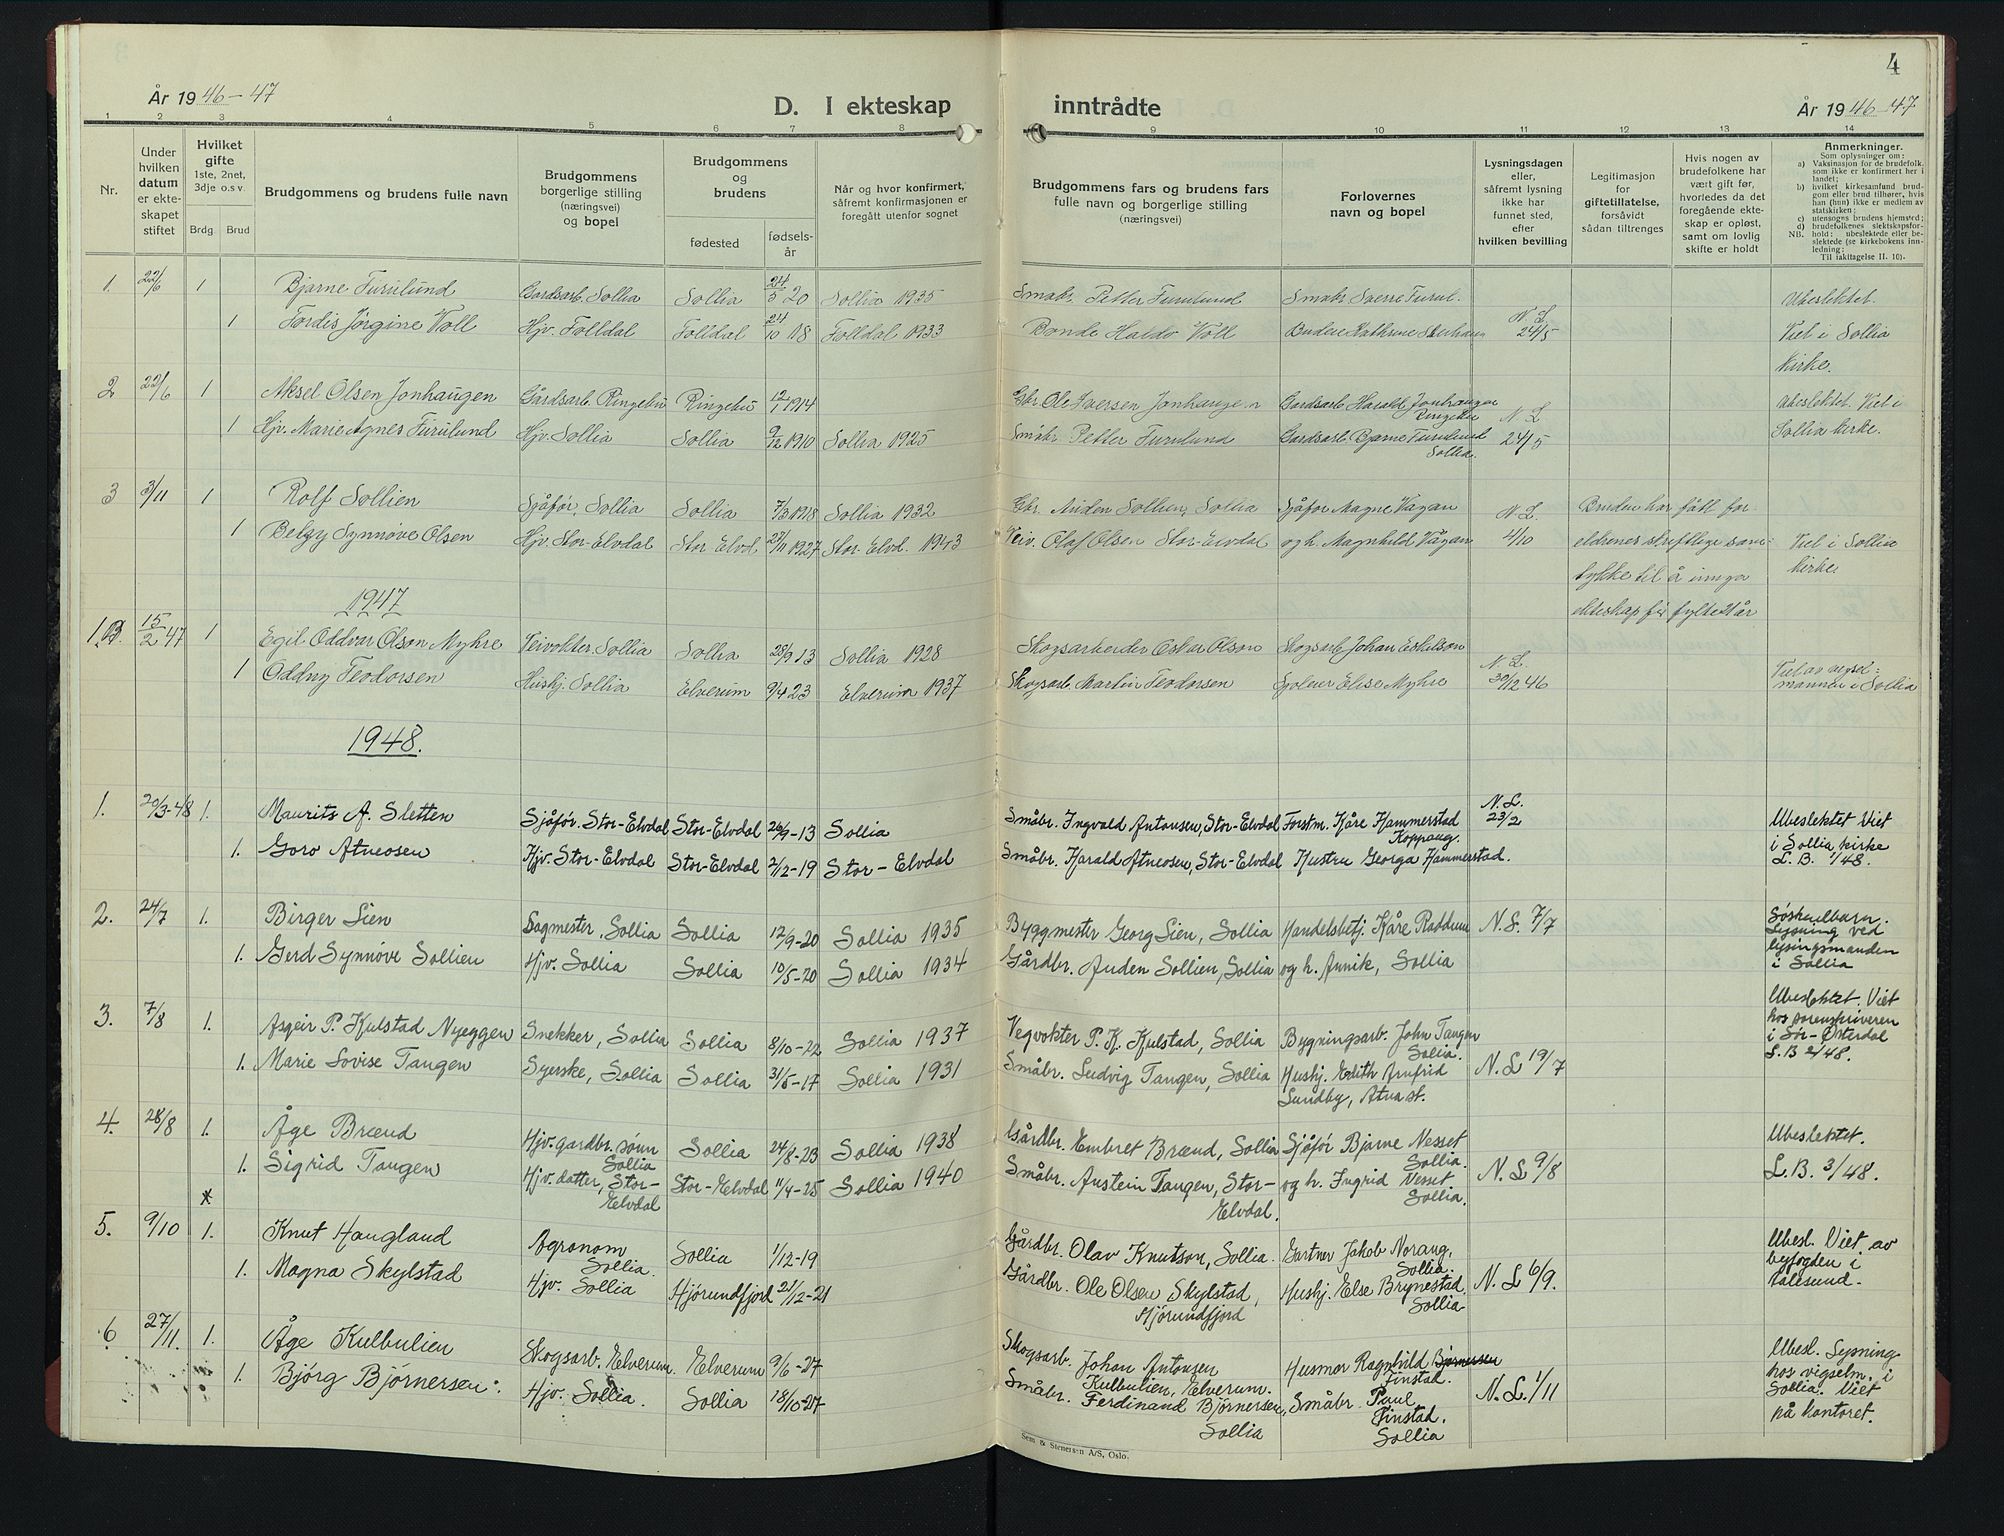 4
År 1946-47
D. I ekteskap inntrådte
År 1946-47
1 2 3 4 5 6 7 8 9 10 11 12 13 14
Nr.
Under hvilken datum er ekteskapet stiftet
Hvilket gifte 1ste, 2net, 3dje o.s v.
Brdg. Brud
Brudgommens og brudens fulle navn
Brudgommens borgerlige stilling (næringsvei) og bopel
Brudgommens og brudens
fødested
fødselsår
Når og hvor konfirmert, såfremt konfirmasjonen er foregått utenfor sognet
Brudgommens fars og brudens fars fulle navn og borgerlige stilling (næringsvei)
Forlovernes navn og bopel
Lysningsdagen eller, såfremt lysning ikke har funnet sted, efter hvilken bevilling
Legitimasjon for giftetillatelse, forsåvidt sådan tiltrenges
Hvis nogen av brudefolkene har vært gift før, hvorledes da det foregående ekteskap er opløst, samt om lovlig skifte er holdt
Anmerkninger.
Som oplysninger om:
a) Vaksinasjon for de brudefolk. som ikke er konfirmert her i landet;
b) hvilket kirkesamfund brudgom eller brud tilhører, hvis han (hun) ikke er medlem av statskirken;
c) utensogns brudens hjemsted;
d) brudefolkenes slektskapsforhold: ubeslektede eller beslektede (se kirkebokens innledning;
NB. Til iakttagelse II. 10).
1. 22/6 1 Bjarne Furulund Gardsarb. Sollia Sollia 24/5 20 Sollia 1935 Småbr. Petter Furulund Småbr Sverre Furul. Ubeslektet.
1 Tordis Jørgine Voll Hjv. Folldal Folldal 24/10 18 Folldal 1933 Bonde Haldo Voll Budeie Kathrine N. L. 24/5 Viet i Sollia
kirke.
2 22/6 1 Aksel Olsen Jonhaugen Gårdsarb. Ringebu Ringebu 12/1 1914 Gbr. Ole Iversen Jonhaugen Gardsarb. Harald Jonhaugen Ringebu Ubeslektet. Viet i
1 Hjv. Marie Agnes Furulund Hjv. Sollia Sollia 9/12 1910 Sollia 1925 Småbr. Petter Furulund Gardsarb. Bjarne Furulund Sollia. N. L. 24/5 Sollia kirke.
3 3/11 1 Rolf Sollien Sjåfør, Sollia Sollia 7/3 1918 Sollia 1932 Gbr. Auden Sollien, Sollia Sjåfør Magne Vågan Bruden har fått for-
1 Belgy Synnøve Olsen Hjv. Stor-Elvdal Stor Elvd. 27/11 1927 Stor-Elvd. 1943 Olaf Olsen Stor-Elvdal og h. Magnhild Vågan N. L. 4/10 eldrenes skriftlige sam- Viet i Sollia
tykke til å inngå kirke
ekteskap før fylte 21 år
1947
1. 15/2 47 1 Egil Oddvar Olson Myhre Veivokter. Sollia Sollia 28/9 13 Sollia 1928 Skogsarbeider Oskar Olson Skogsarb Johan Eskilson
1 Oddny Teodorsen Hushj. Sollia Elverum 9/4 23 Elverum 1937 Skogsarb. Martin Teodorsen Elise Myhre N. L. 30/12 46 Viet av vigsel-
mannen i Sollia
1948.
1. 20/3-48 1. Maurits A. Sletten Sjåfør. Stor-Elvdal Stor-Elvdal 26/9-13 Sollia Småbr. Ingvald Antonsen, Stor-Elvdal Forstm. Kåre Hammerstad Koppang. N. L. 23/2 Ubeslektet Viet
1. Goro Atneosen Hjv. Stor-Elvdal Stor-Elvdal 2/12-19 Stor-Elvdal Småbr. Harald Atneosen, Stor-Elvdal Hustru Georga Hammerstad. i Sollia kirke
L. B. 1/48.
2. 24/7 1. Birger Lien Dagmester, Sollia Sollia 12/9-20 Sollia 1935 Byggmester Georg Lien, Sollia Handelsbetj. Kåre Raddum N. L. 7/7 Søskenbarn.
1. Gerd Synnøve Sollien Hjv. Sollia Sollia 10/5-20 Sollia 1934 Gårdbr. Auden Sollien, Sollia og h. Annik, Sollia Lysning ved
lysingsmanden
i Sollia
3. 7/8 1. Asgeir P. Kulstad Nyeggen Snekker, Sollia Sollia 8/10-22 Sollia 1937 Vegvokter P. K. Kulstad, Sollia Bygningsarb. John Tangen Sollia. Ubeslektet. Viet
1. Marie Lovise Tangen Syerske, Sollia Sollia 31/5-17 Sollia 1931 Småbr. Ludvig Tangen, Sollia Hushj. Edith Arnfrid Sundby, Atna st. N. L. 19/7 hos sorenskriveren
i Sør-Østerdal
L. B 2/48.
4. 28/8 1. Åge Brænd Hjv. gardbr. sønn Sollia Sollia 24/8-23 Sollia 1938 Gårdbr. Embret Brænd, Sollia Sjåfør Bjarne Nesset Sollia. Ubeslektet.
1. Sigrid Tangen Hjv. datter, Stor-Elvdal Stor-Elvdal 11/4-25 Sollia 1940 Småbr. Austein Tangen, Stor-Elvdal. og h. Ingrid Nesset Sollia. N. L 9/8 L. B. 3/48.
5. 9/10 1. Knut Haugland Agronom Sollia. Sollia 1/12-19 Gårdbr. Olav Knutson, Sollia. Gartner Jakob Norang, Sollia. Ubesl. Viet av
1. Magna Skylstad Hjv. Sollia Hjørundfjord 21/12-21 Gårdbr. Ole Olsen Skylstad, Hjørundfjord Hushj. Else Brynestad Sollia. N. L 6/9. byfogden i
Aalesund.
6 27/11. 1. Åge Kulbulien Skogsarb. Elverum. Elverum 9/6-27 Skogsarb. Johan Antonsen Kulbulien, Elverum. Husmor Ragnhild Bjørnersen Finstad. Ubesl. Lysning
1. Bjørg Bjørnersen. Hjv. Sollia. Sollia 18/10-27 Småbr. Ferdinand Bjørnersen, Sollia Småbr. Paul Finstad. Sollia N. L. 1/11 hos vigselm. i
Sollia. Viet
på kontoret.
Sem & Stenersen A/S, Oslo.